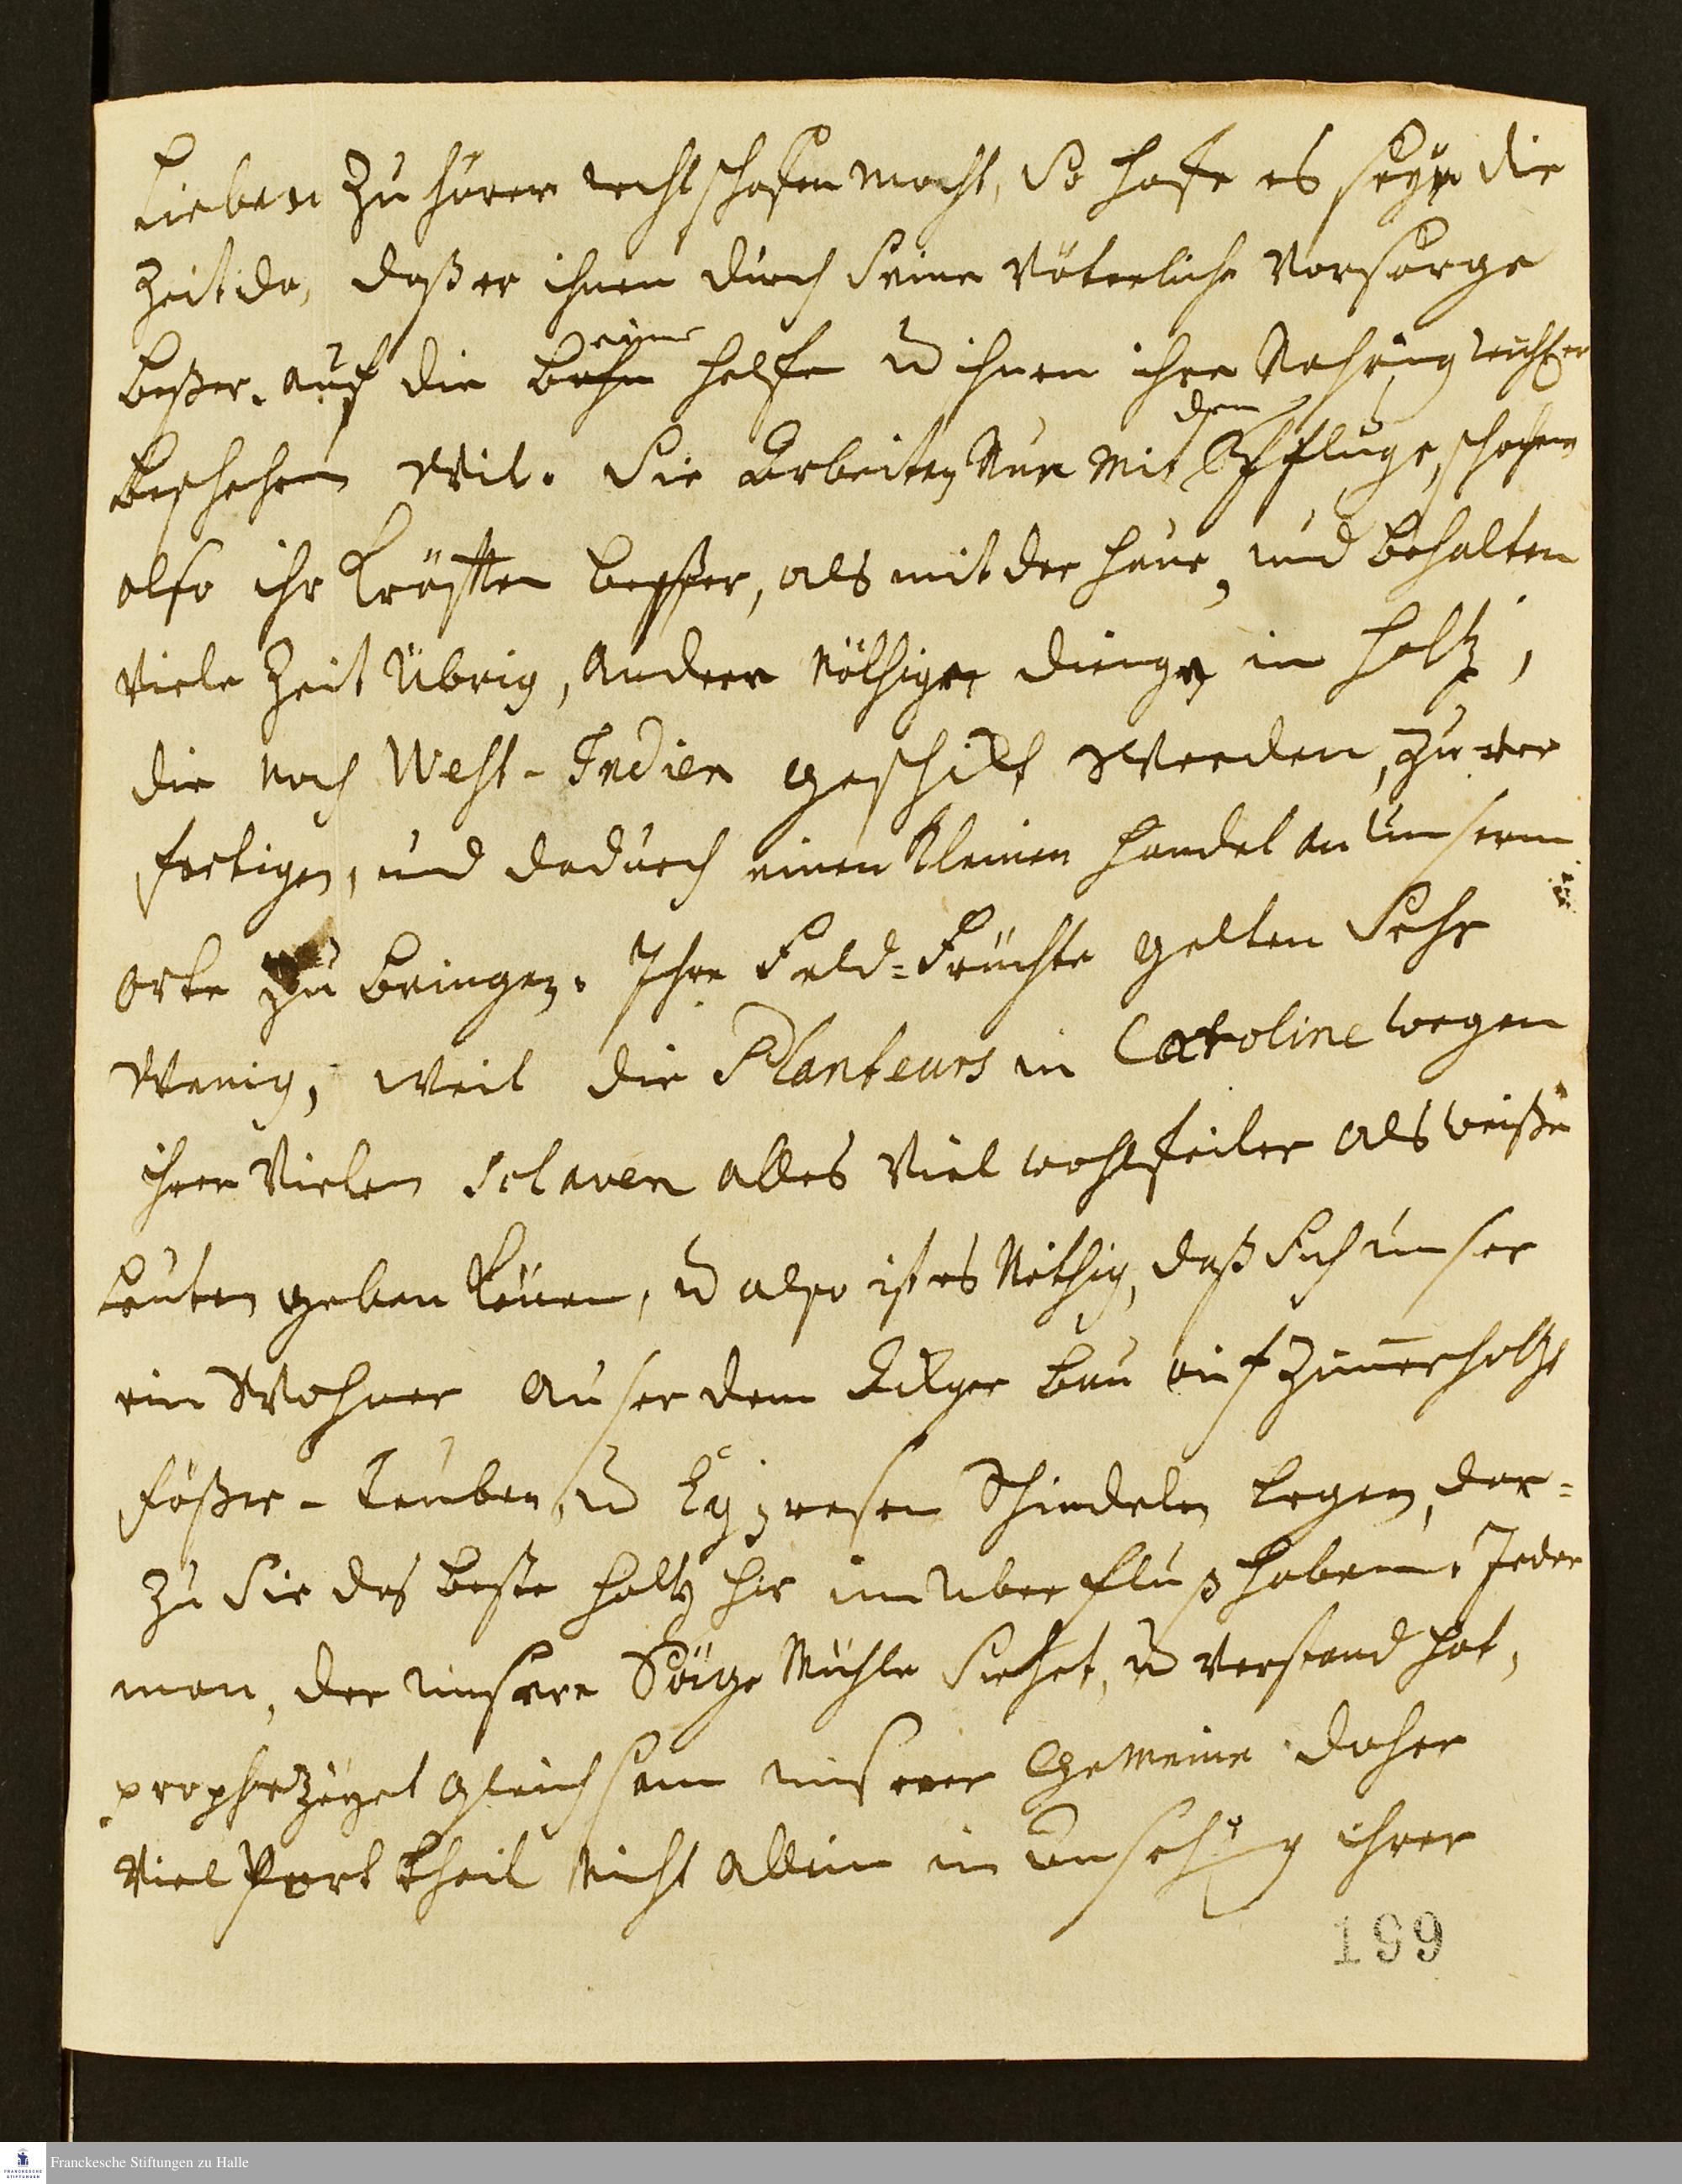 Lieben Zuhörer rechtschaffen macht, So hoffe es seyn die
Zeit da, daß er ihnen durch Seine Väterliche Vorsorge
beßer auf die beine helfe u ihnen ihre Nahrung
Wil. Sie Arbeiten Nun Mit dem Pfluge, schohnen
also ihr Kräfften besser, als mit der haue, und behalten
Viele Zeit Übrig, Andere Nöthige dinge in Holtz,
die Nach West-Indien geschikt Werden, zu ver
fertigen, und dadurch einen Kleinen Handel an unserm
Orte zu bringen. Ihre Feld-Früchte gelten Sehr
Wenig, Weil die Planteurs in Caroline wegen
ihrer Vielen Sclaven alles Viel wohlfeiler als weiße
Leuten geben könen, u also ist es Nöthig, daß Sich unser
ein Wohner auser dem Akger bau auf Zimerholtz
Fößer-Tauben u Cypresen Schindeln legen, dar=
zu Sie das beste holtz hir im Uberfluß haben. Jeder
man, der unsere Säge Mühle Siehet, u Verstand hat,
prophezeyet gleichsam unserer Gemeine daher
Viel Vortheil Nicht allein in Ansehung ihrer
199
Franckesche Stiftungen zu Halle
FRANCKESCHE
STIFTUNGEN